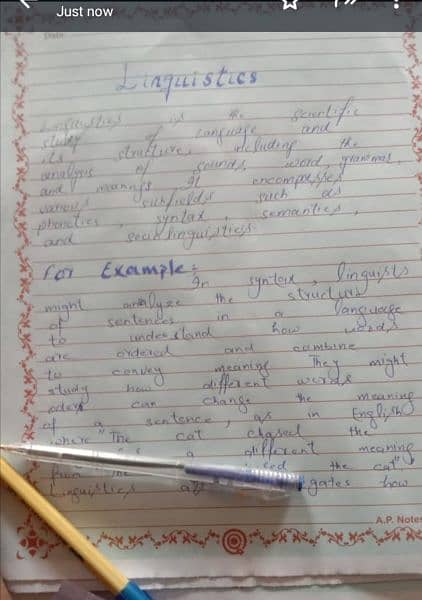 Just now
Linguistics
Linguistics is the Scientific
study of language and
its structure, including the
analysis of sounds, word, grammar,
and meanings It encompasses
various subfields such as
phonetics, syntax, semantics,
and sociolinguistics
For Example:
In syntax, linguists
might analyze the structure
of sentences in a language
to understand how words
are ordered and combine
to convey meaning They might
study how different words
orders can change the meaning
of a sentence, as in English
where "The cat chased the
a different meaning
from the the cat"
Linguistics gates how
A.P. Notes